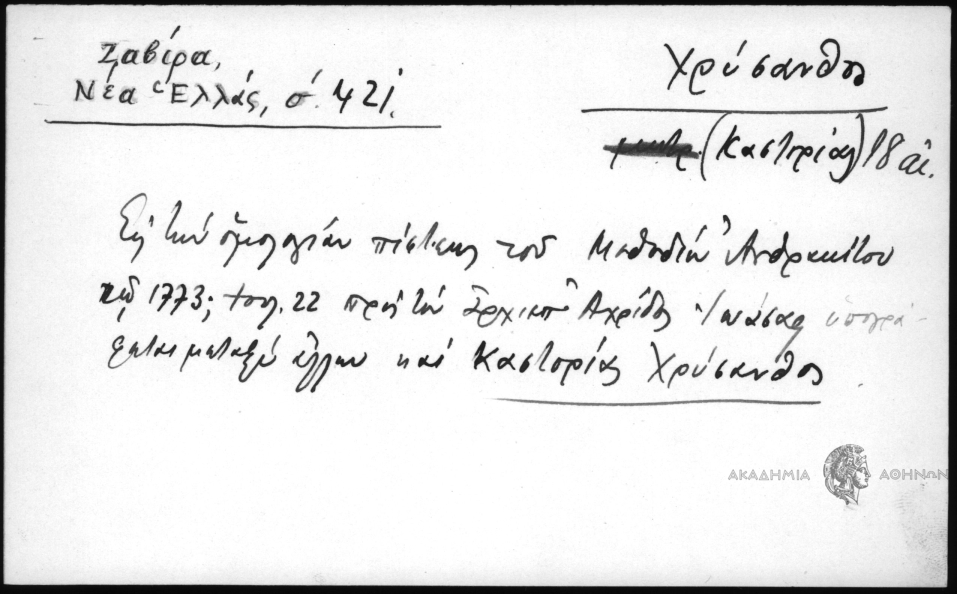 Ζαβίρα,
Νέα Ἑλλάς, σ. 421.
Χρύσανθος
(Καστορίας) 18 αἰ.
Εἰς τὴν ὁμολογίαν πίστεως τοῦ Μεθοδίου Ἀνθρακίτου
1773; 22 πρὸς τὸν Ἀρχιεπ. Ἀχρίδος Ἰωάσαφ ὑπογρά-
φεται μεταξὺ ἄλλων καὶ Καστορίας Χρύσανθος
ΑΚΑΔΗΜΙΑ ΑΘΗΝΩΝ